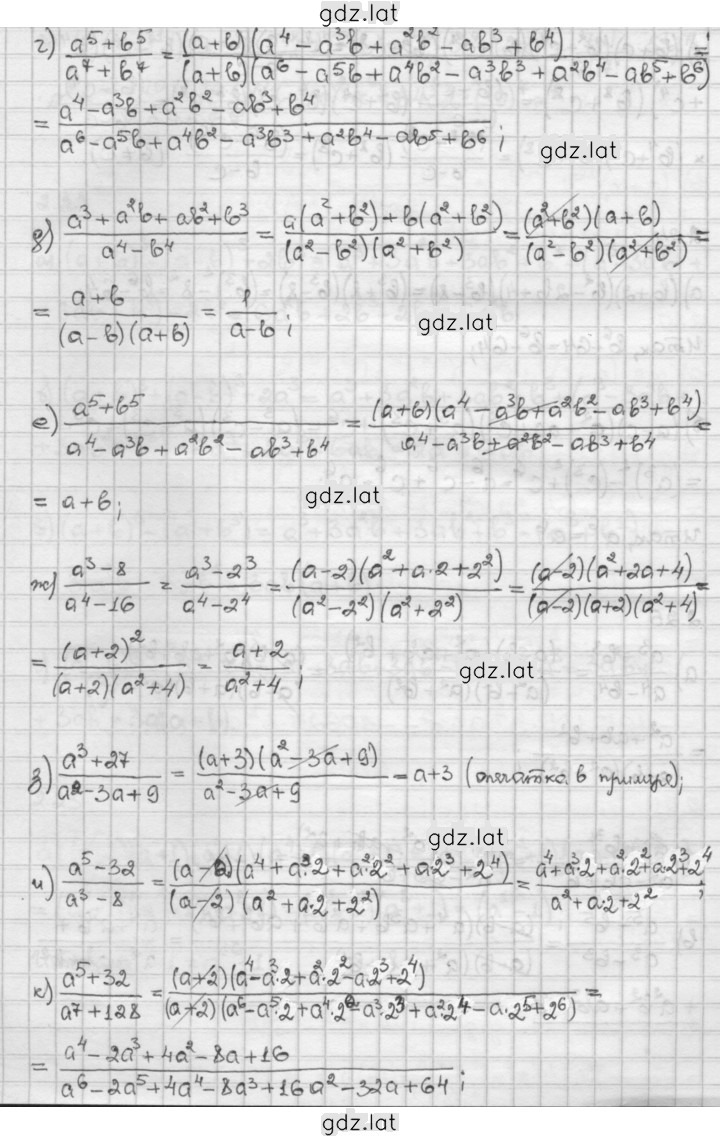 gdz.lat
г) (a⁵+b⁵)/(a⁷+b⁷) = ((a+b)(a⁴-a³b+a²b²-ab³+b⁴))/((a+b)(a⁶-a⁵b+a⁴b²-a³b³+a²b⁴-ab⁵+b⁶)) =
= (a⁴-a³b+a²b²-ab³+b⁴)/(a⁶-a⁵b+a⁴b²-a³b³+a²b⁴-ab⁵+b⁶);
gdz.lat
д) (a³+a²b+ab²+b³)/(a⁴-b⁴) = (a(a²+b²)+b(a²+b²))/((a²-b²)(a²+b²)) = ((a²+b²)(a+b))/((a²-b²)(a²+b²)) =
= (a+b)/((a-b)(a+b)) = 1/(a-b);
gdz.lat
е) (a⁵+b⁵)/(a⁴-a³b+a²b²-ab³+b⁴) = ((a+b)(a⁴-a³b+a²b²-ab³+b⁴))/(a⁴-a³b+a²b²-ab³+b⁴) =
= a+b;
gdz.lat
ж) (a³-8)/(a⁴-16) = (a³-2³)/(a⁴-2⁴) = ((a-2)(a²+a·2+2²))/((a²-2²)(a²+2²)) = ((a-2)(a²+2a+4))/((a-2)(a+2)(a²+4)) =
= (a+2)²/((a+2)(a²+4)) = (a+2)/(a²+4);
gdz.lat
з) (a³+27)/(a²-3a+9) = ((a+3)(a²-3a+9))/(a²-3a+9) = a+3 (опечатка в примере);
gdz.lat
и) (a⁵-32)/(a³-8) = ((a-2)(a⁴+a³·2+a²·2²+a·2³+2⁴))/((a-2)(a²+a·2+2²)) = (a⁴+a³·2+a²·2²+a·2³+2⁴)/(a²+a·2+2²);
к) (a⁵+32)/(a⁷+128) = ((a+2)(a⁴-a³·2+a²·2²-a·2³+2⁴))/((a+2)(a⁶-a⁵·2+a⁴·2²-a³·2³+a²·2⁴-a·2⁵+2⁶)) =
= (a⁴-2a³+4a²-8a+16)/(a⁶-2a⁵+4a⁴-8a³+16a²-32a+64);
gdz.lat